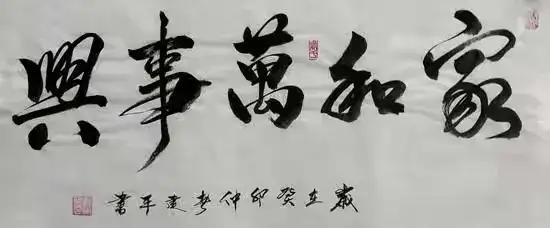 家和萬事興
歲在癸卯仲春建平書